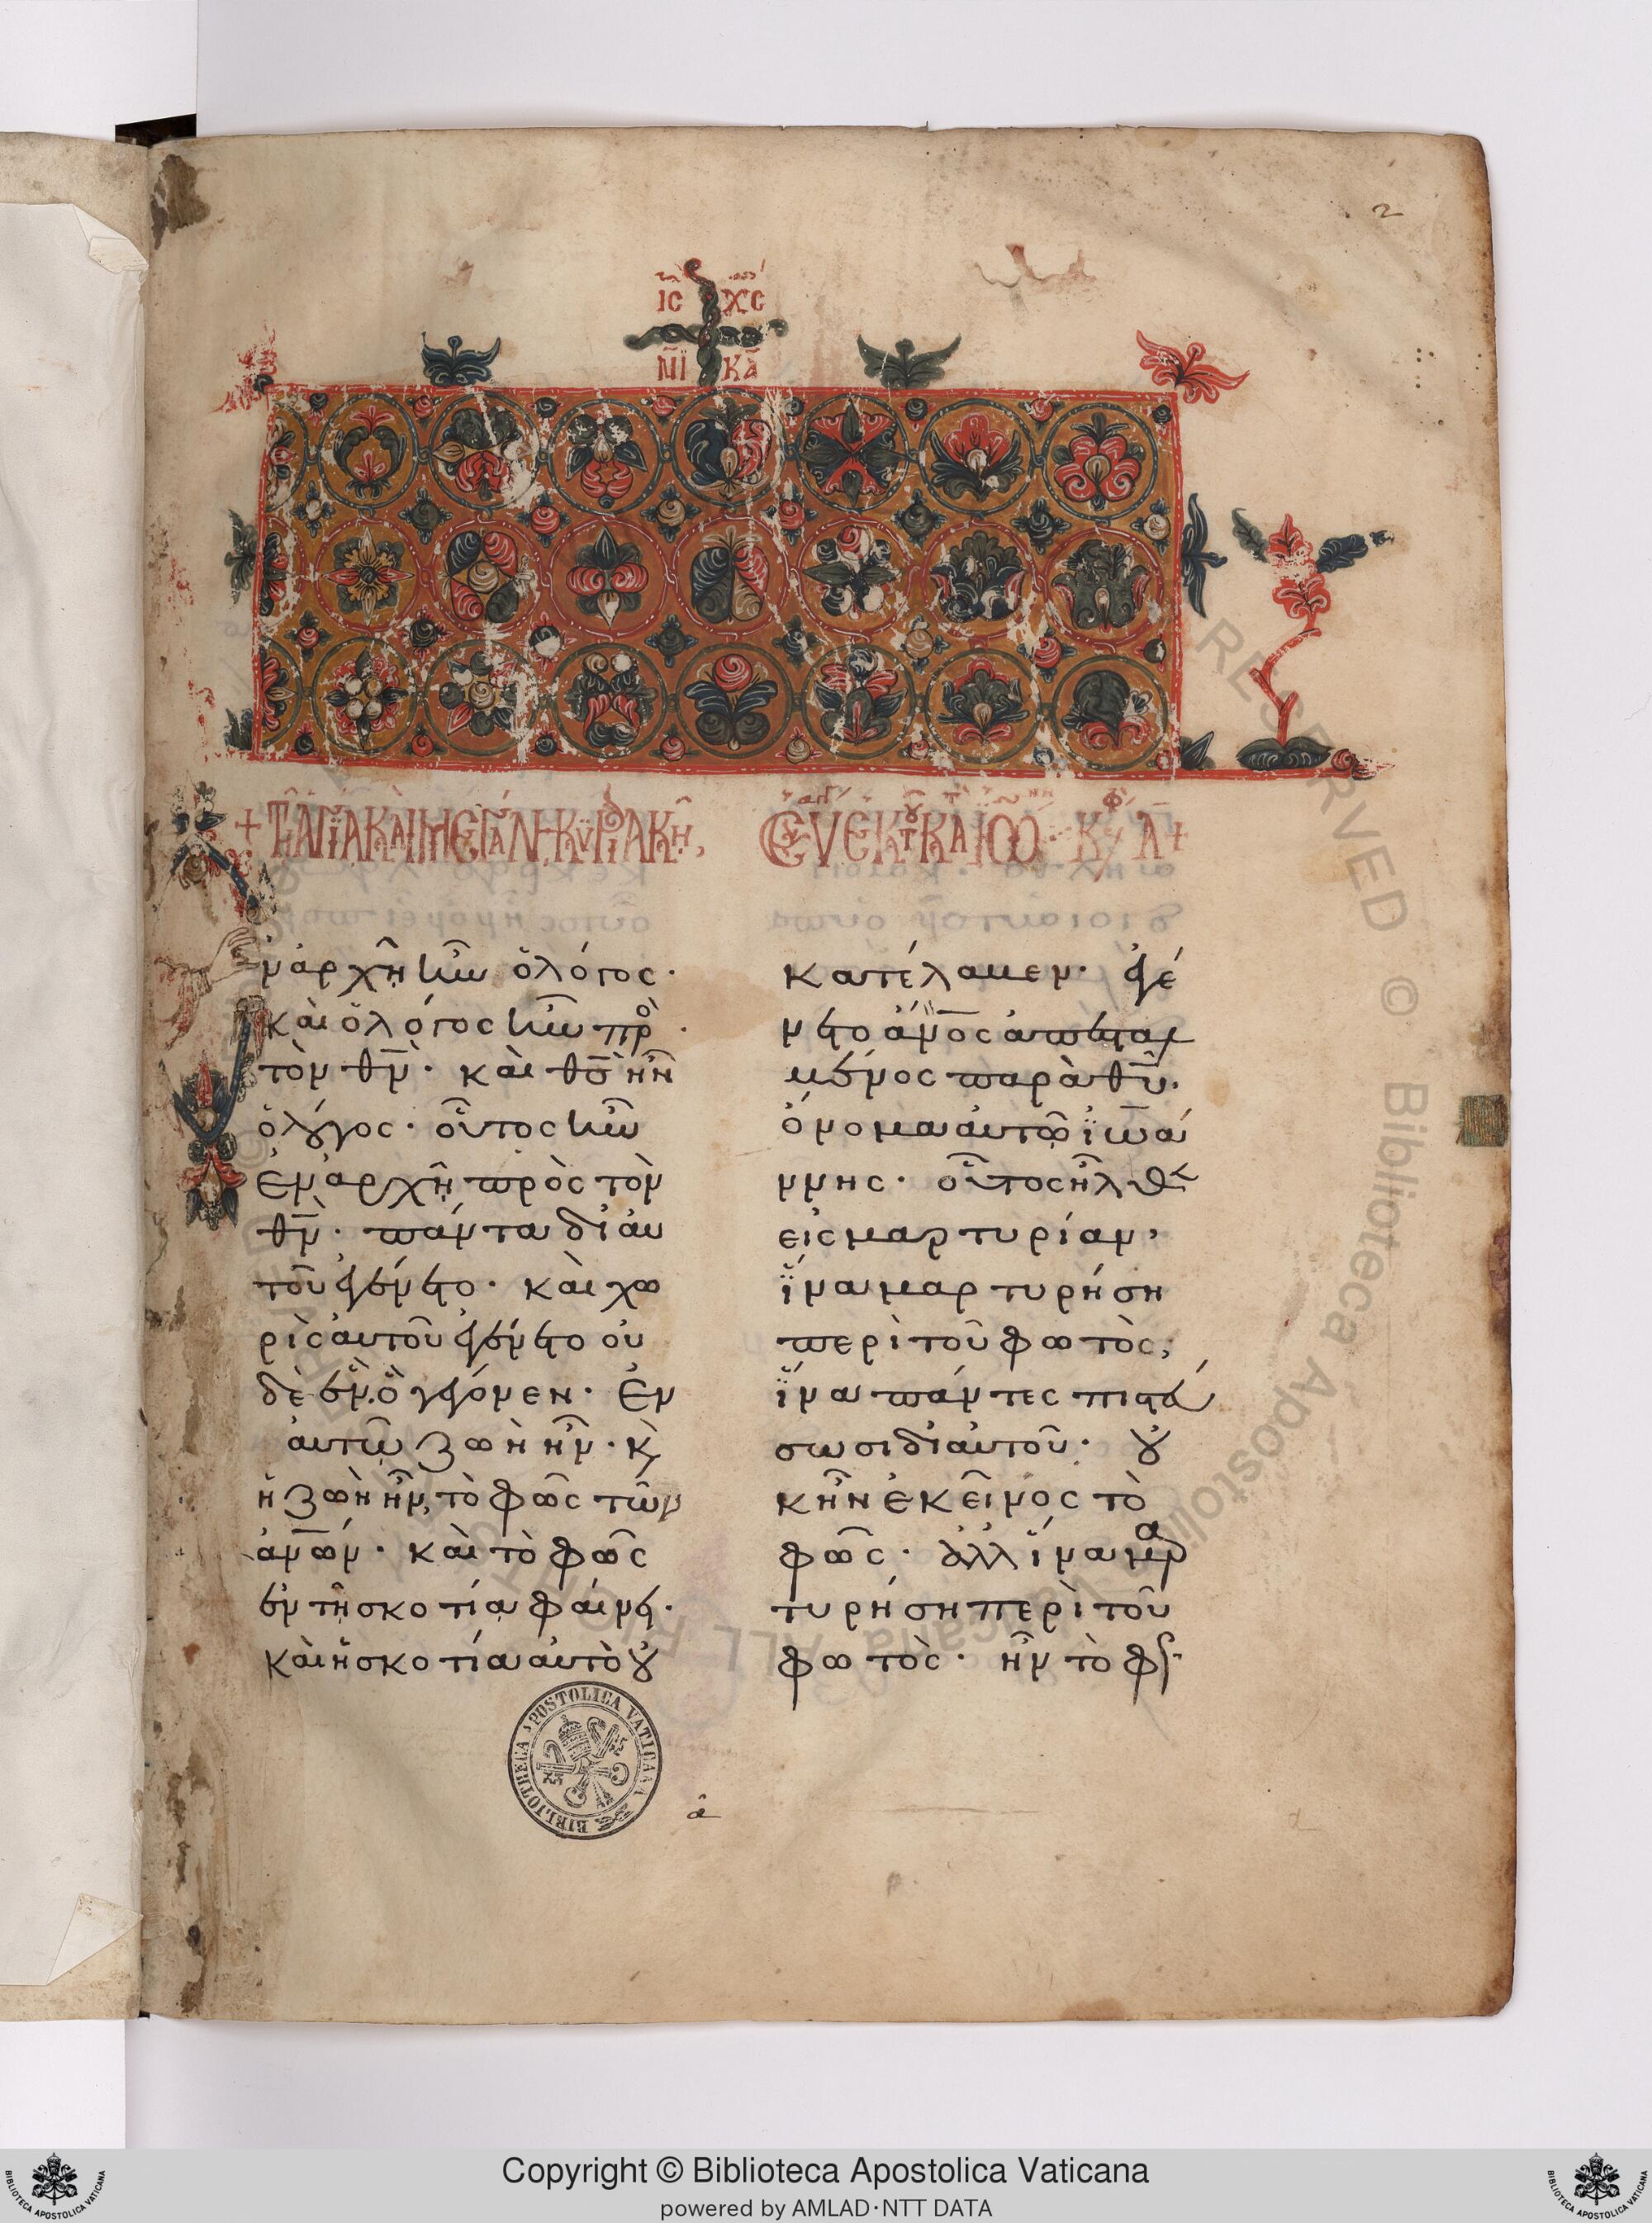 2
ΙC ΧC
ΝΙ ΚΑ
+ ΤῌΑΓΙΑΚΑΙΜΕΓΑΛΚΥΡΙΑΚΗ
ΕΚΤΚΑΙΩ Κ Α+
ν ἀρχῆ ἦν ὁ λόγος·
καὶ ὁ λόγος ἦν πρὸ
τὸν θν̄· καὶ θς̄ ἦν
ὁ λόγος· οὗτος ἦν
ἐν ἀρχῆ πρὸς τὸν
θν̄· πάντα δι αυ
τοῦ ἐγένετο· καὶ χω
ρὶς αὐτοῦ ἐγένετο οὐ
δὲ ἕν. ὃ γέγονεν· Ἐν
αὐτῶ ζωὴ ἦν· κ̀
ἡ ζωὴ ἦν, τὸ φῶς τῶν
ἀν̄ων· καὶ τὸ φῶς
ἐν τῆ σκοτία φαίνει·
καὶ ἡ σκοτία αὐτὸ οὐ
κατέλαβεν· ἐγέ
νετο ἀν̄ος ἀπεσταλ
μένος παρὰ θῡ·
ὄνομα αὐτῶ ϊωά
ννης· οὗτος ἦλθεν
εἰς μαρτυρίαν,
ἵνα μαρτυρήση
περὶ τοῦ φωτὸς,
ἵνα πάντες πιστεύ
σωσι δι αὐτοῦ· οὐ
κ ἦν ἐκεῖνος τὸ
φῶς· ἀλλ ἵνα μαρ
τυρήση περὶ τοῦ
φωτὸς· ἦν τὸ φς
BIBLIOTHECA APOSTOLICA VATICANA
α
RESERVED © Biblioteca Apostolica Vaticana ALL RIGHTS
Copyright © Biblioteca Apostolica Vaticana
powered by AMLAD·NTT DATA
BIBLIOTECA APOSTOLICA VATICANA
BIBLIOTECA APOSTOLICA VATICANA